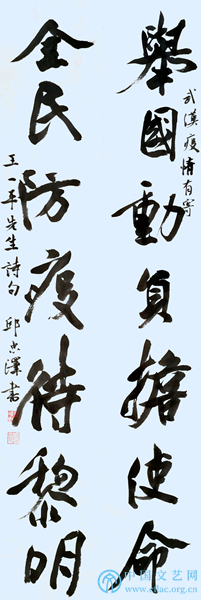 武漢疫情有寄
舉國動員擔使命
全民防疫待黎明
王一平先生詩句 邱忠澤書
中国文艺网
www.cflac.org.cn